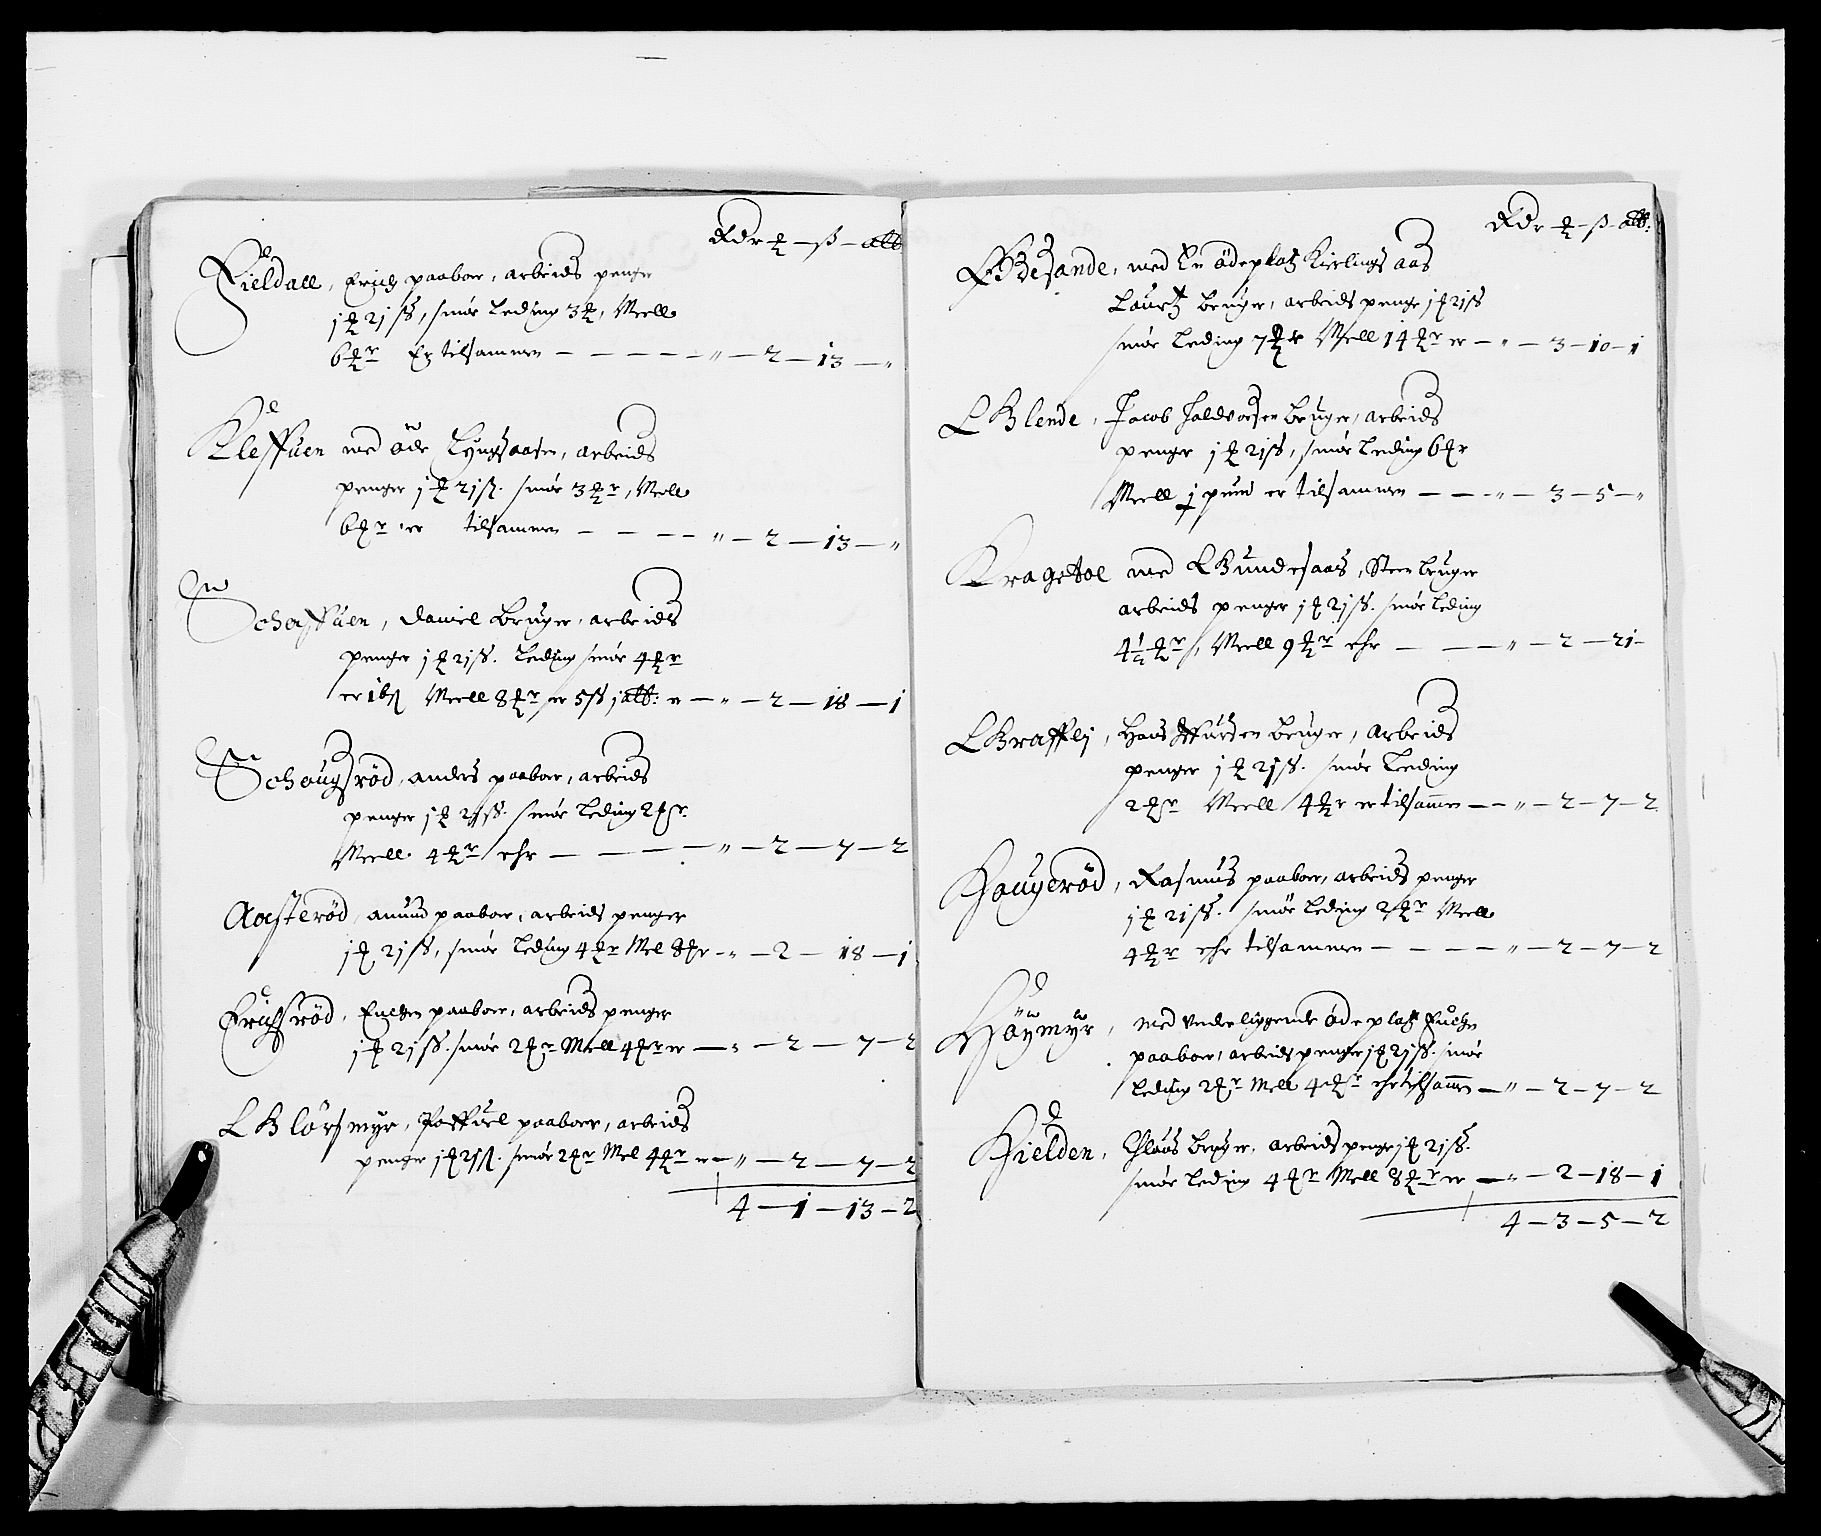 Rdr – ß – alb
Fieldall, Erich paaboer, arbeids penge
j 21 ß, smør Leding 3, Meell
6 Er tilsammen – – – – – " – 2 – 13 – "
Kleffuen med øde Lyngsaasen, arbeids
penger j 21 ß. smør 3, Mell
6 er tilsammen – – – – " – 2 – 13 – "
Schaffuen, Daniel Bruger, arbeids
penger j 21 ß. Leding smør 4
er 16 ß Meell 8 er 5 ß j alb: er – " – 2 – 18 – 1
Schougsrød, anders paaboer, arbeids
penger j 21 ß. smør Leding 2
Meell 4 ehr – – – – " – 2 – 7 – 2
Aasterød, anund paaboer, arbeids penger
j 21 ß, smør Leding 4 Mel 8 – " – 2 – 18 – 1
Erichsrød, paaboer, arbeids penger
j 21 ß. smør 2 Mell 4 er – " – 2 – 7 – 2
Blørsmyr, Poffuel paaboer, arbeids
penge j 21 ß. smør 2 Mel 4 er – " – 2 – 7 – 2
4 – 1 – 13 – 2
Rdr – ß – alb:
Besande, med En ødeplatz Kierlings aas
Lauritz Bruger, arbeids penge j 21 ß
smør Leding 7 Mell 14 er – " – 3 – 10 – 1
Blende, Jacob Halduorsen Bruger, arbeids
penge j 21 ß, smør Leding 6
Meell j pund er tilsammen – – " – 3 – 5 – "
Kragetoe med Gundesaas, Steen bruger
arbeids penger j 21 ß. smør Leding
4½, Meell 9 ehr – – – " – 2 – 21 –
Graffli, Hans Bruger, Arbeids
penger j 21 ß. smør Leding
2 Meell 4 er tilsammen – – " – 2 – 7 – 2
Haugerød, Rasmus paaboer, arbeids penger
j 21 ß. smør Leding 2 Mell
4 ehr tilsammen – – – – " – 2 – 7 – 2
Høymyr, med underliggende øde platz
paaboer, arbeids penger j 21 ß. smør
Leding 2 Mell 4 ehr tilsammen – " – 2 – 7 – 2
Kielden, Claas Bruger, arbeids penge j 21 ß.
smør Leding 4 Mell 8 er – " – 2 – 18 – 1
4 – 3 – 5 – 2